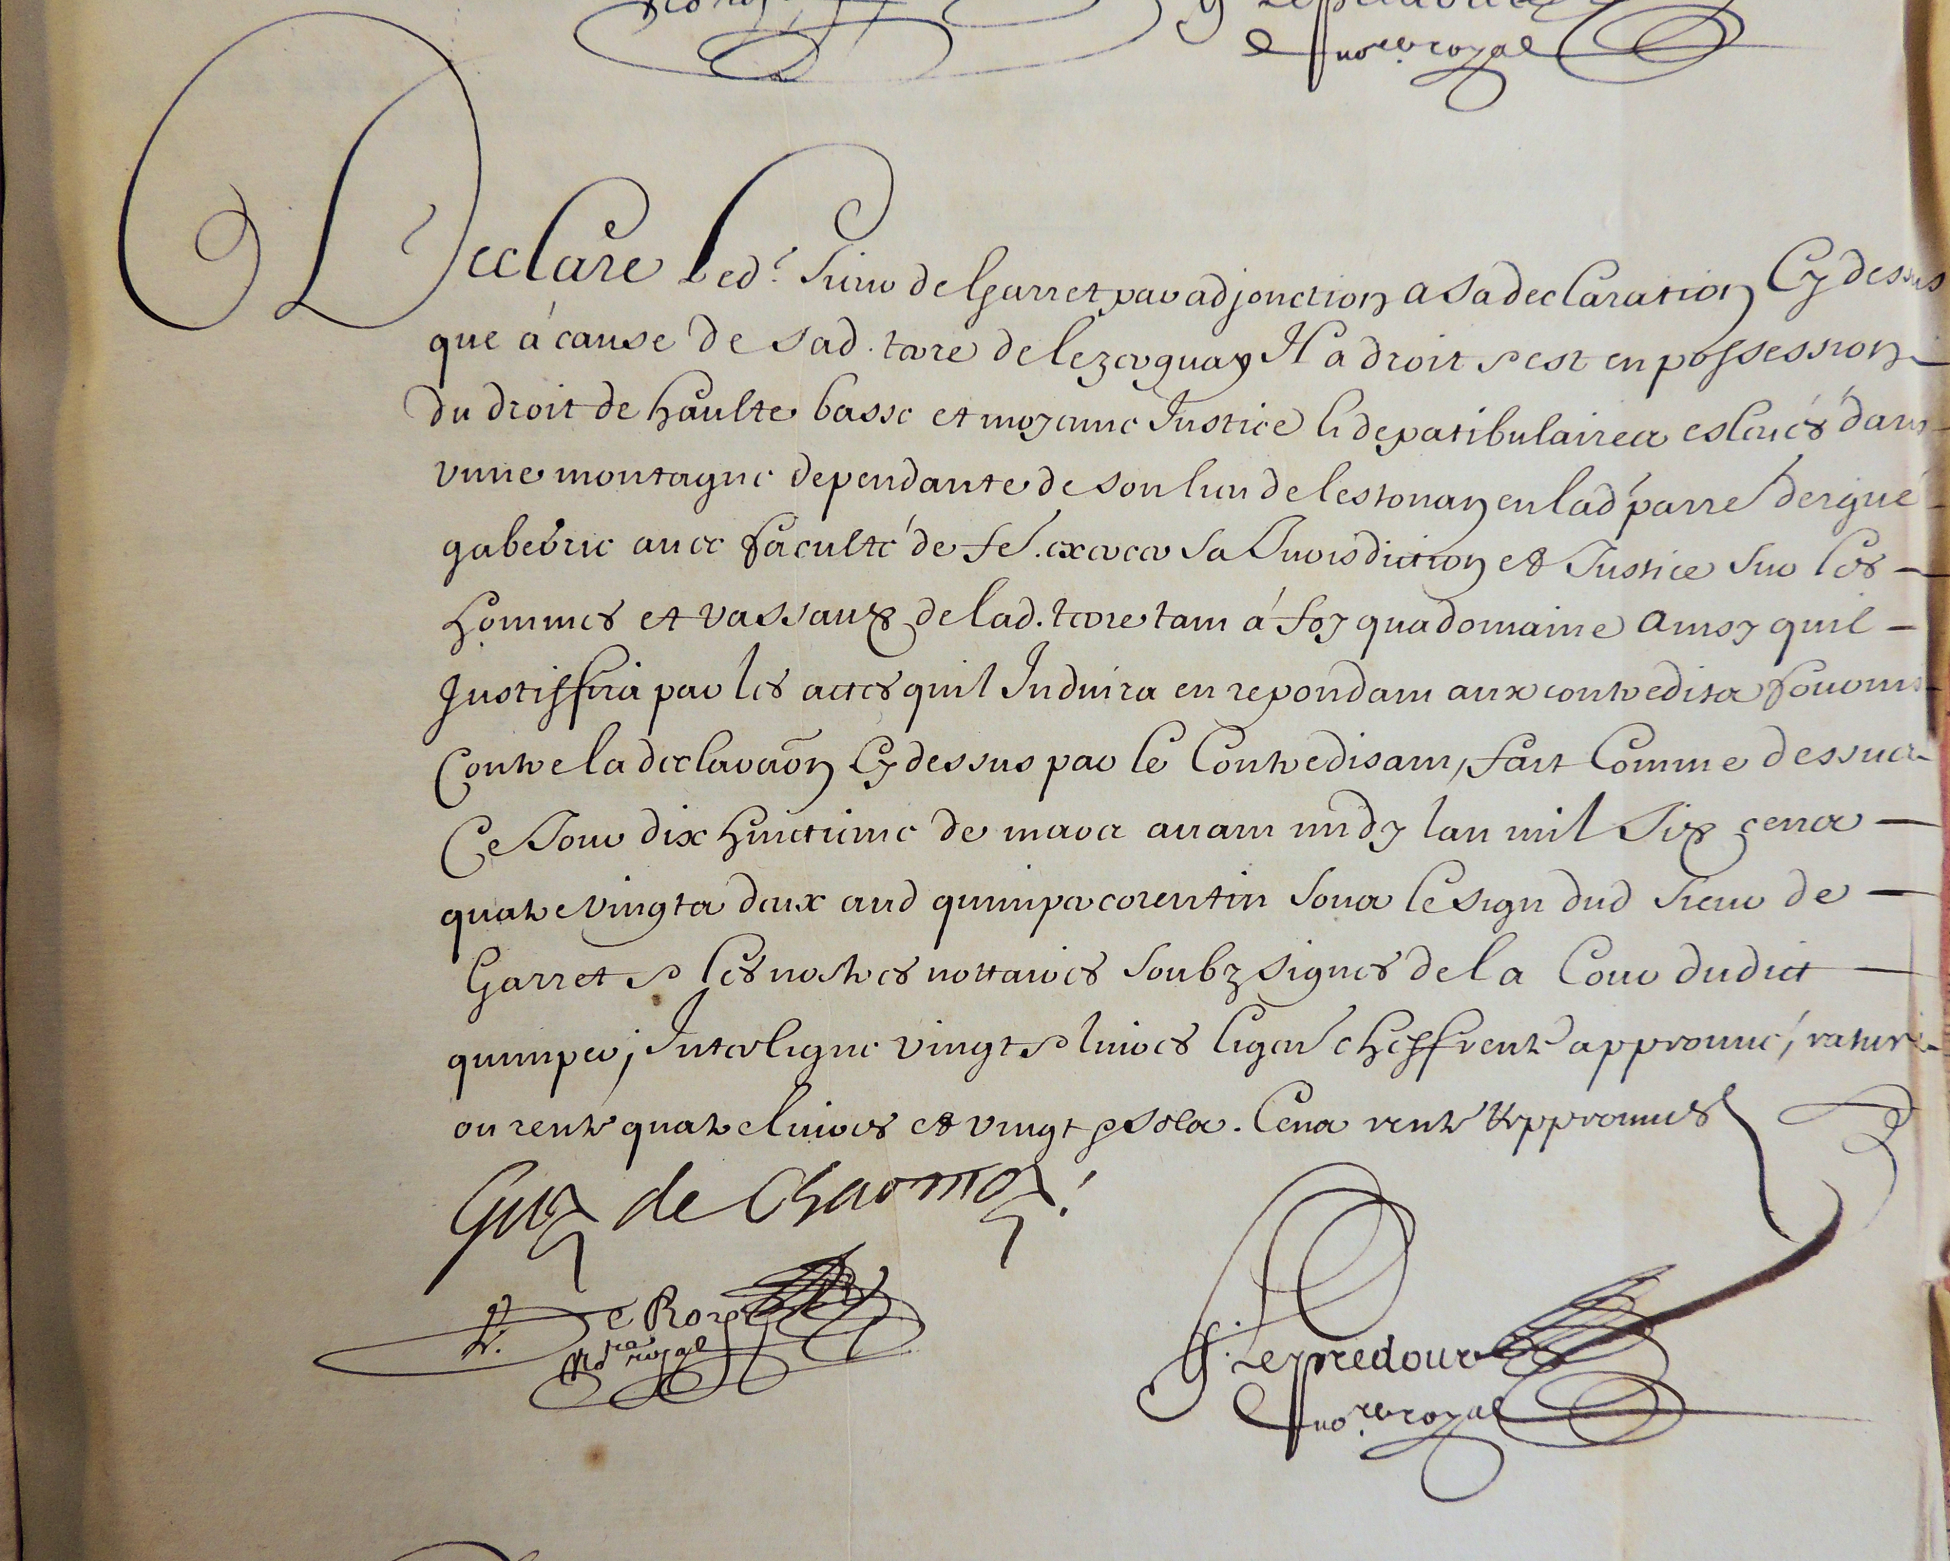 no.re royal
Declare led.t sieur de Garret par adjonction a sa declaration Cy dessus
que à cause de sad. terre de lezerguay Il a droit & est en possession
du droit de haulte basse et moyenne Justice & de patibulaires esleués dans
vnne montagne dependante de son lieu de lestonan en lad parre dergué
gabebric auec faculté de fe. exercer sa Jurisdiction et Justice sur les
hommes et vassaux de lad. terre tant à foy qua domaine ainsy quil
Justiffira par les actes quil Induira en repondant aux contredits fournis
Contre la declaraõn Cy dessus par le Contredisant, fait Comme dessus
Ce Jour dix huictieme de mars auant midy lan mil Six cents
quatre vingts deux aud quimper corentin soux le sign dud sieur de
Garret & les nostres nottaires soubz signes de la Cour dudict
quimper, Interligne vingt & liures cheffrente approuué, rature
ou rente quatre liures et vingt sols. Cens rente approuues
Guy de Charmoy
De Roy
no.re royal
G. Lepredour
no.re royal